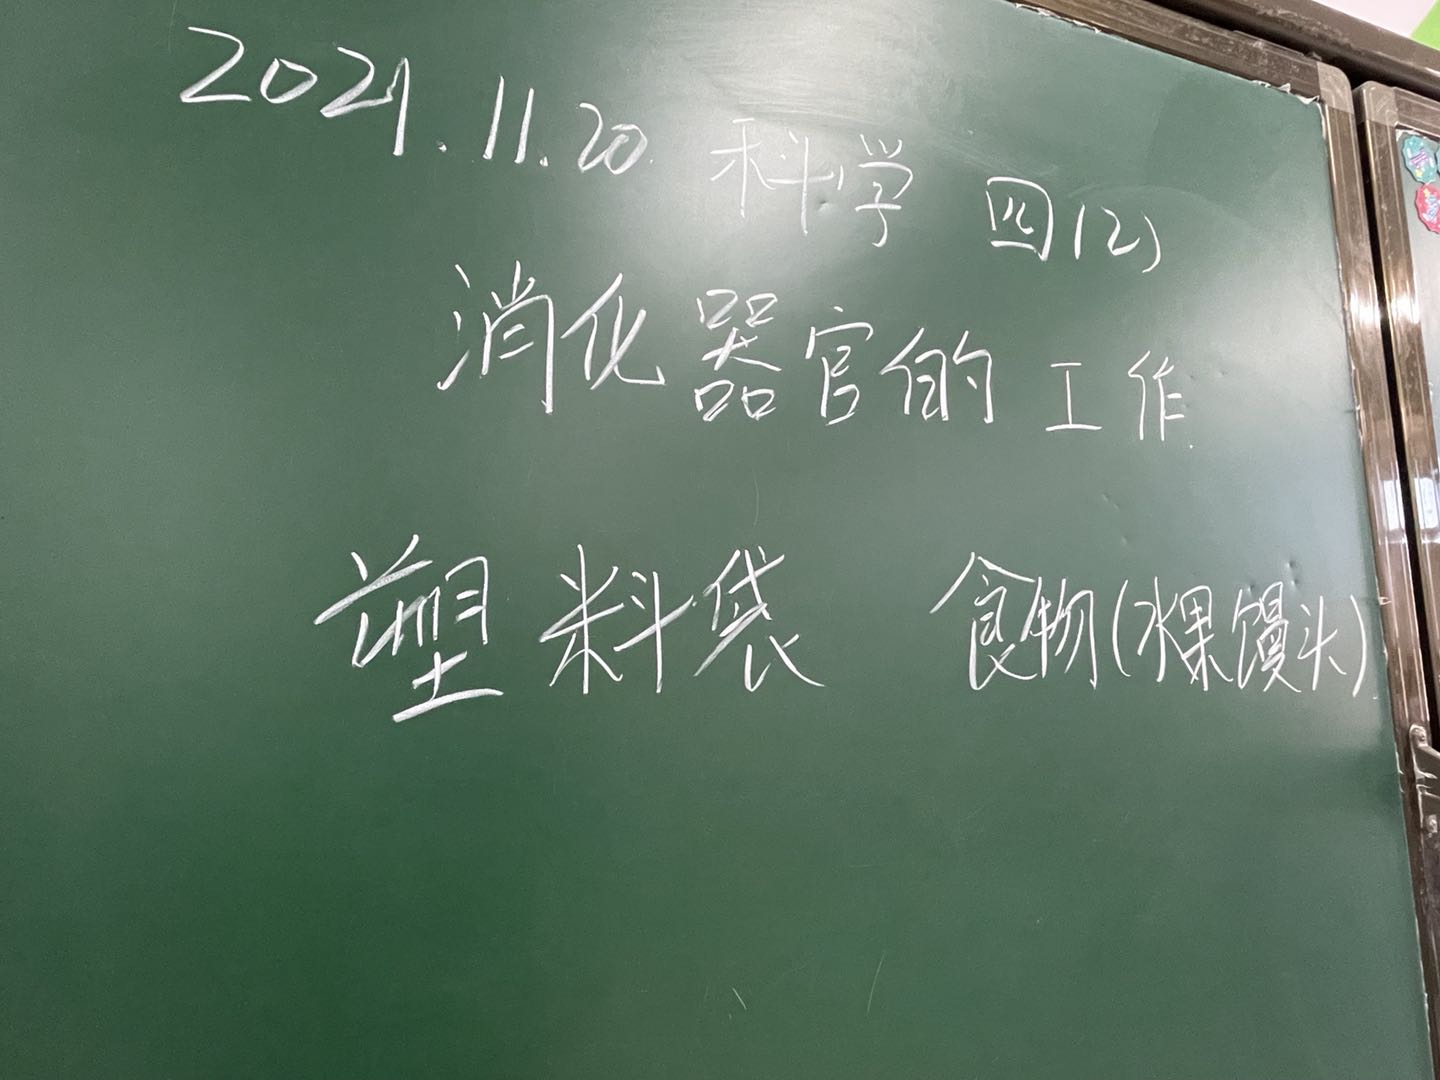 2021.11.20 科学 四(2)
消化器官的工作
塑料袋 食物(水果馒头)